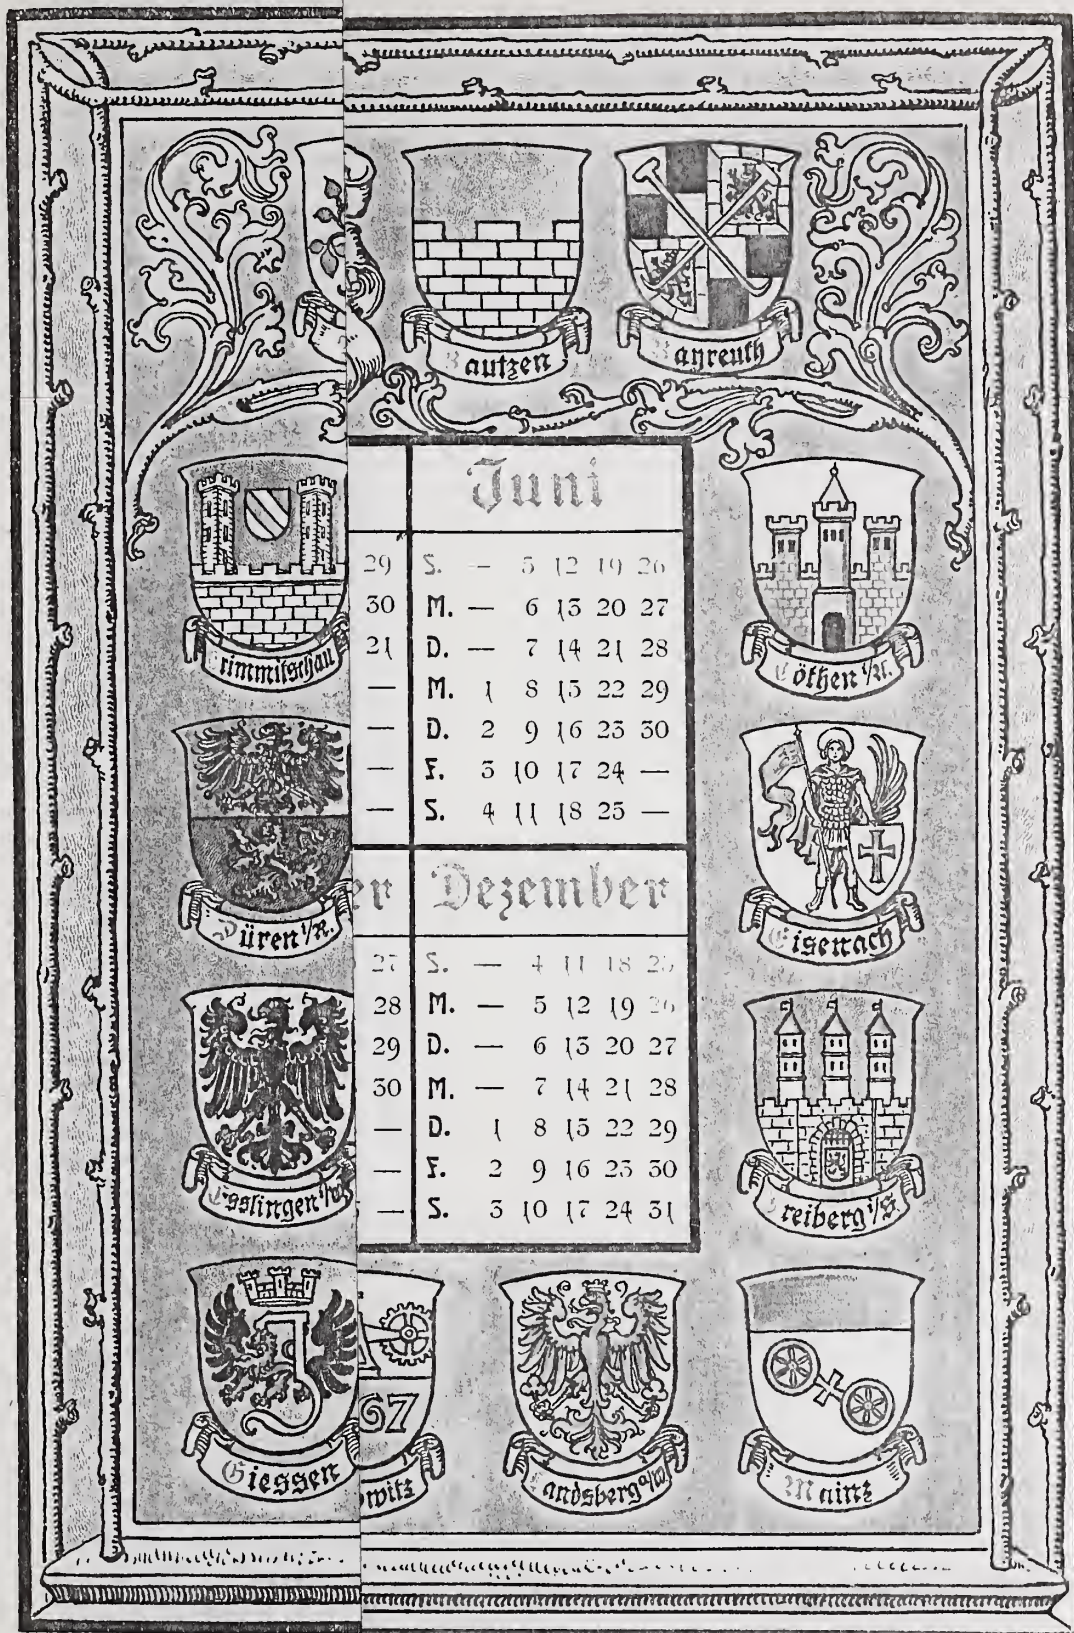 Bautzen
Bayreuth
Crimmitschau
Juni
29 S. — 5 12 19 26
30 M. — 6 13 20 27
21 D. — 7 14 21 28
— M. 1 8 15 22 29
— D. 2 9 16 23 30
— F. 3 10 17 24 —
— S. 4 11 18 25 —
Cöthen i/A.
Düren i/R.
Eisenach
er Dezember
27 S. — 4 11 18 25
28 M. — 5 12 19 26
29 D. — 6 13 20 27
30 M. — 7 14 21 28
— D. 1 8 15 22 29
— F. 2 9 16 23 30
— S. 3 10 17 24 31
Esslingen i/W
Freiberg i/S.
67
Giessen
witz
Landsberg a/W
Mainz